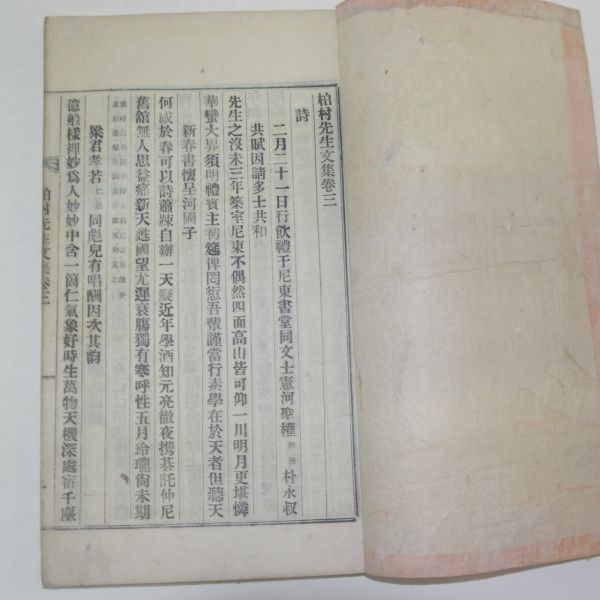 柏村先生文集卷三
詩
二月二十一日行飮禮于尼東書堂同文士憲河聖權 朴永叔
共賦因請多士共和
先生之沒未三年築室尼東不偶然四面高山皆可仰一川明月更堪憐
華蠻大界須明禮賓主初筵俾罔愆吾輩謹當行素學在於天者但聽天
新春書懷呈河國子
何感於春可以詩蕭踈自辦一天癡近年學酒知元亮徹夜携碁託仲尼
舊館無人思益痛新天甦國望尤遲哀腸獨有寒呼性五月玲瓏尙未期
梁君孝若 同彪兒有唱酬因次其韵
億般樣裡妙爲人妙妙中含一箇仁氣象好時生萬物天機深處宿千塵
柏村先生文集卷三